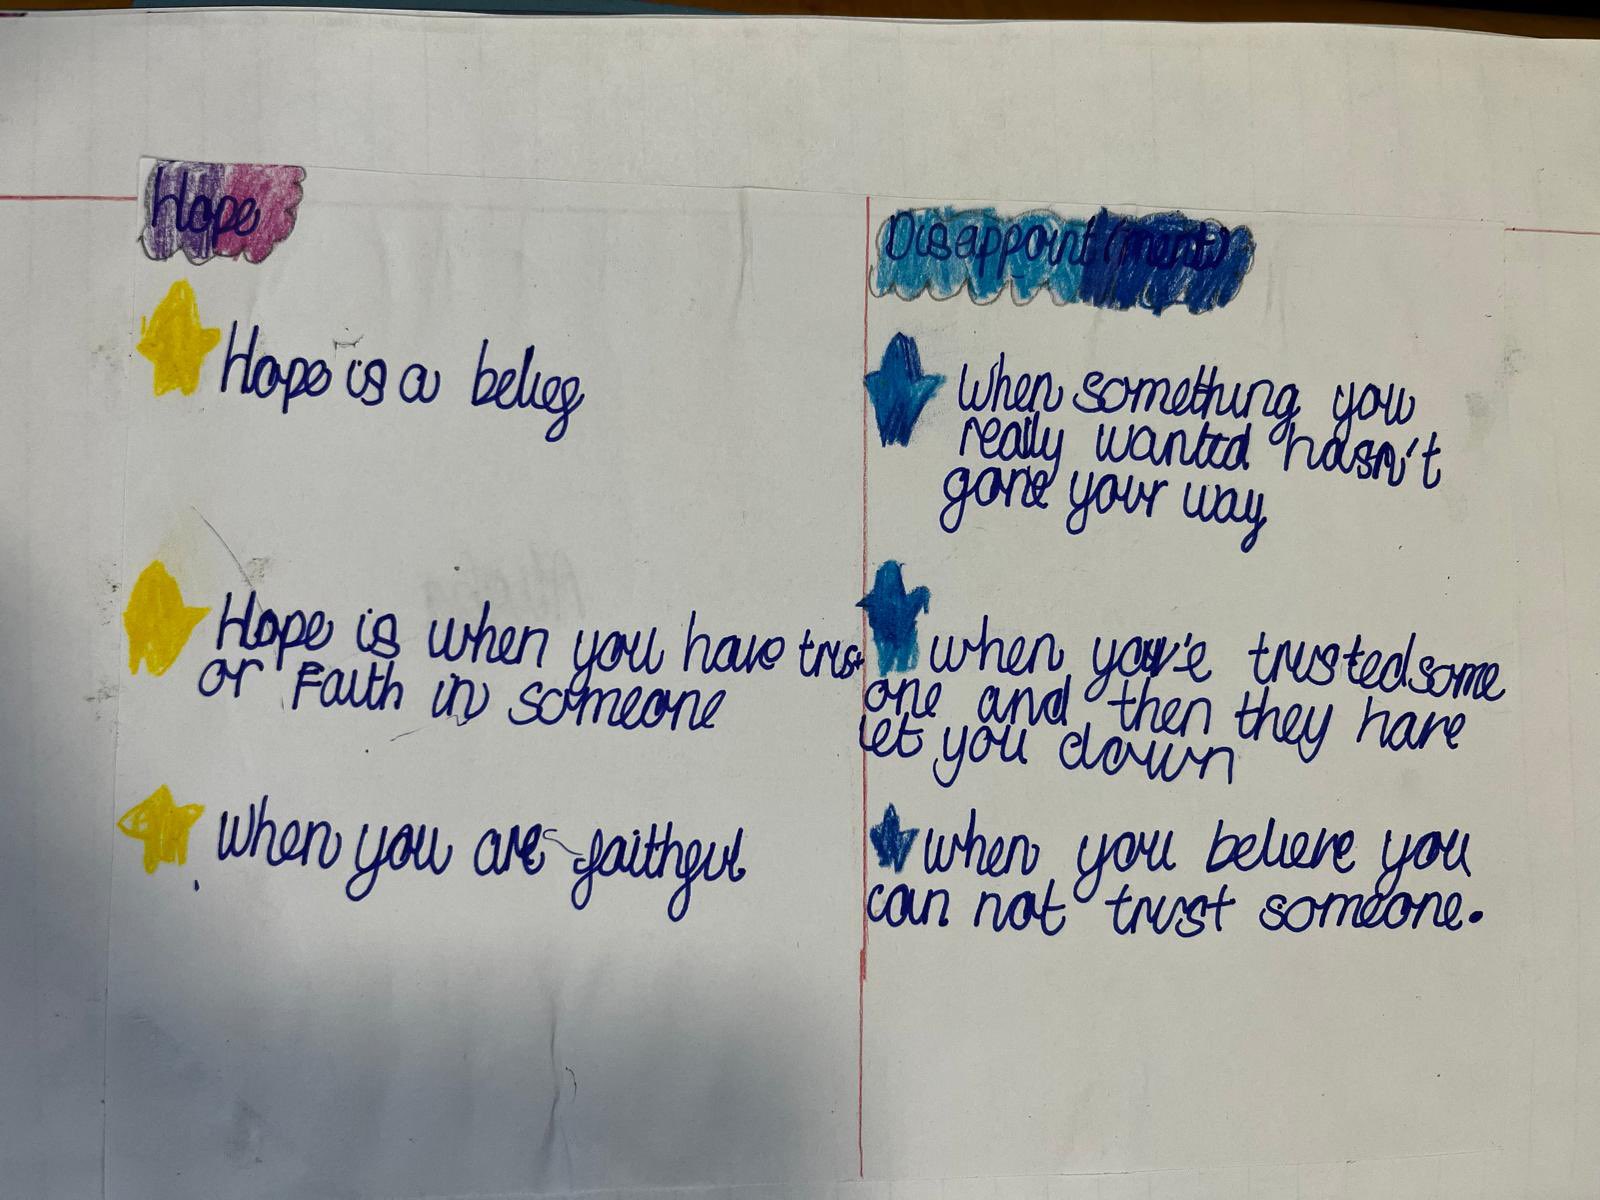 Hope
Hope is a belief
Hope is when you have trust
or Faith in someone
When you are faithful
Disappoint(ment)
When something you
really wanted hasn't
gone your way
when you've trusted some
one and then they have
let you down
when you believe you
can not trust someone.